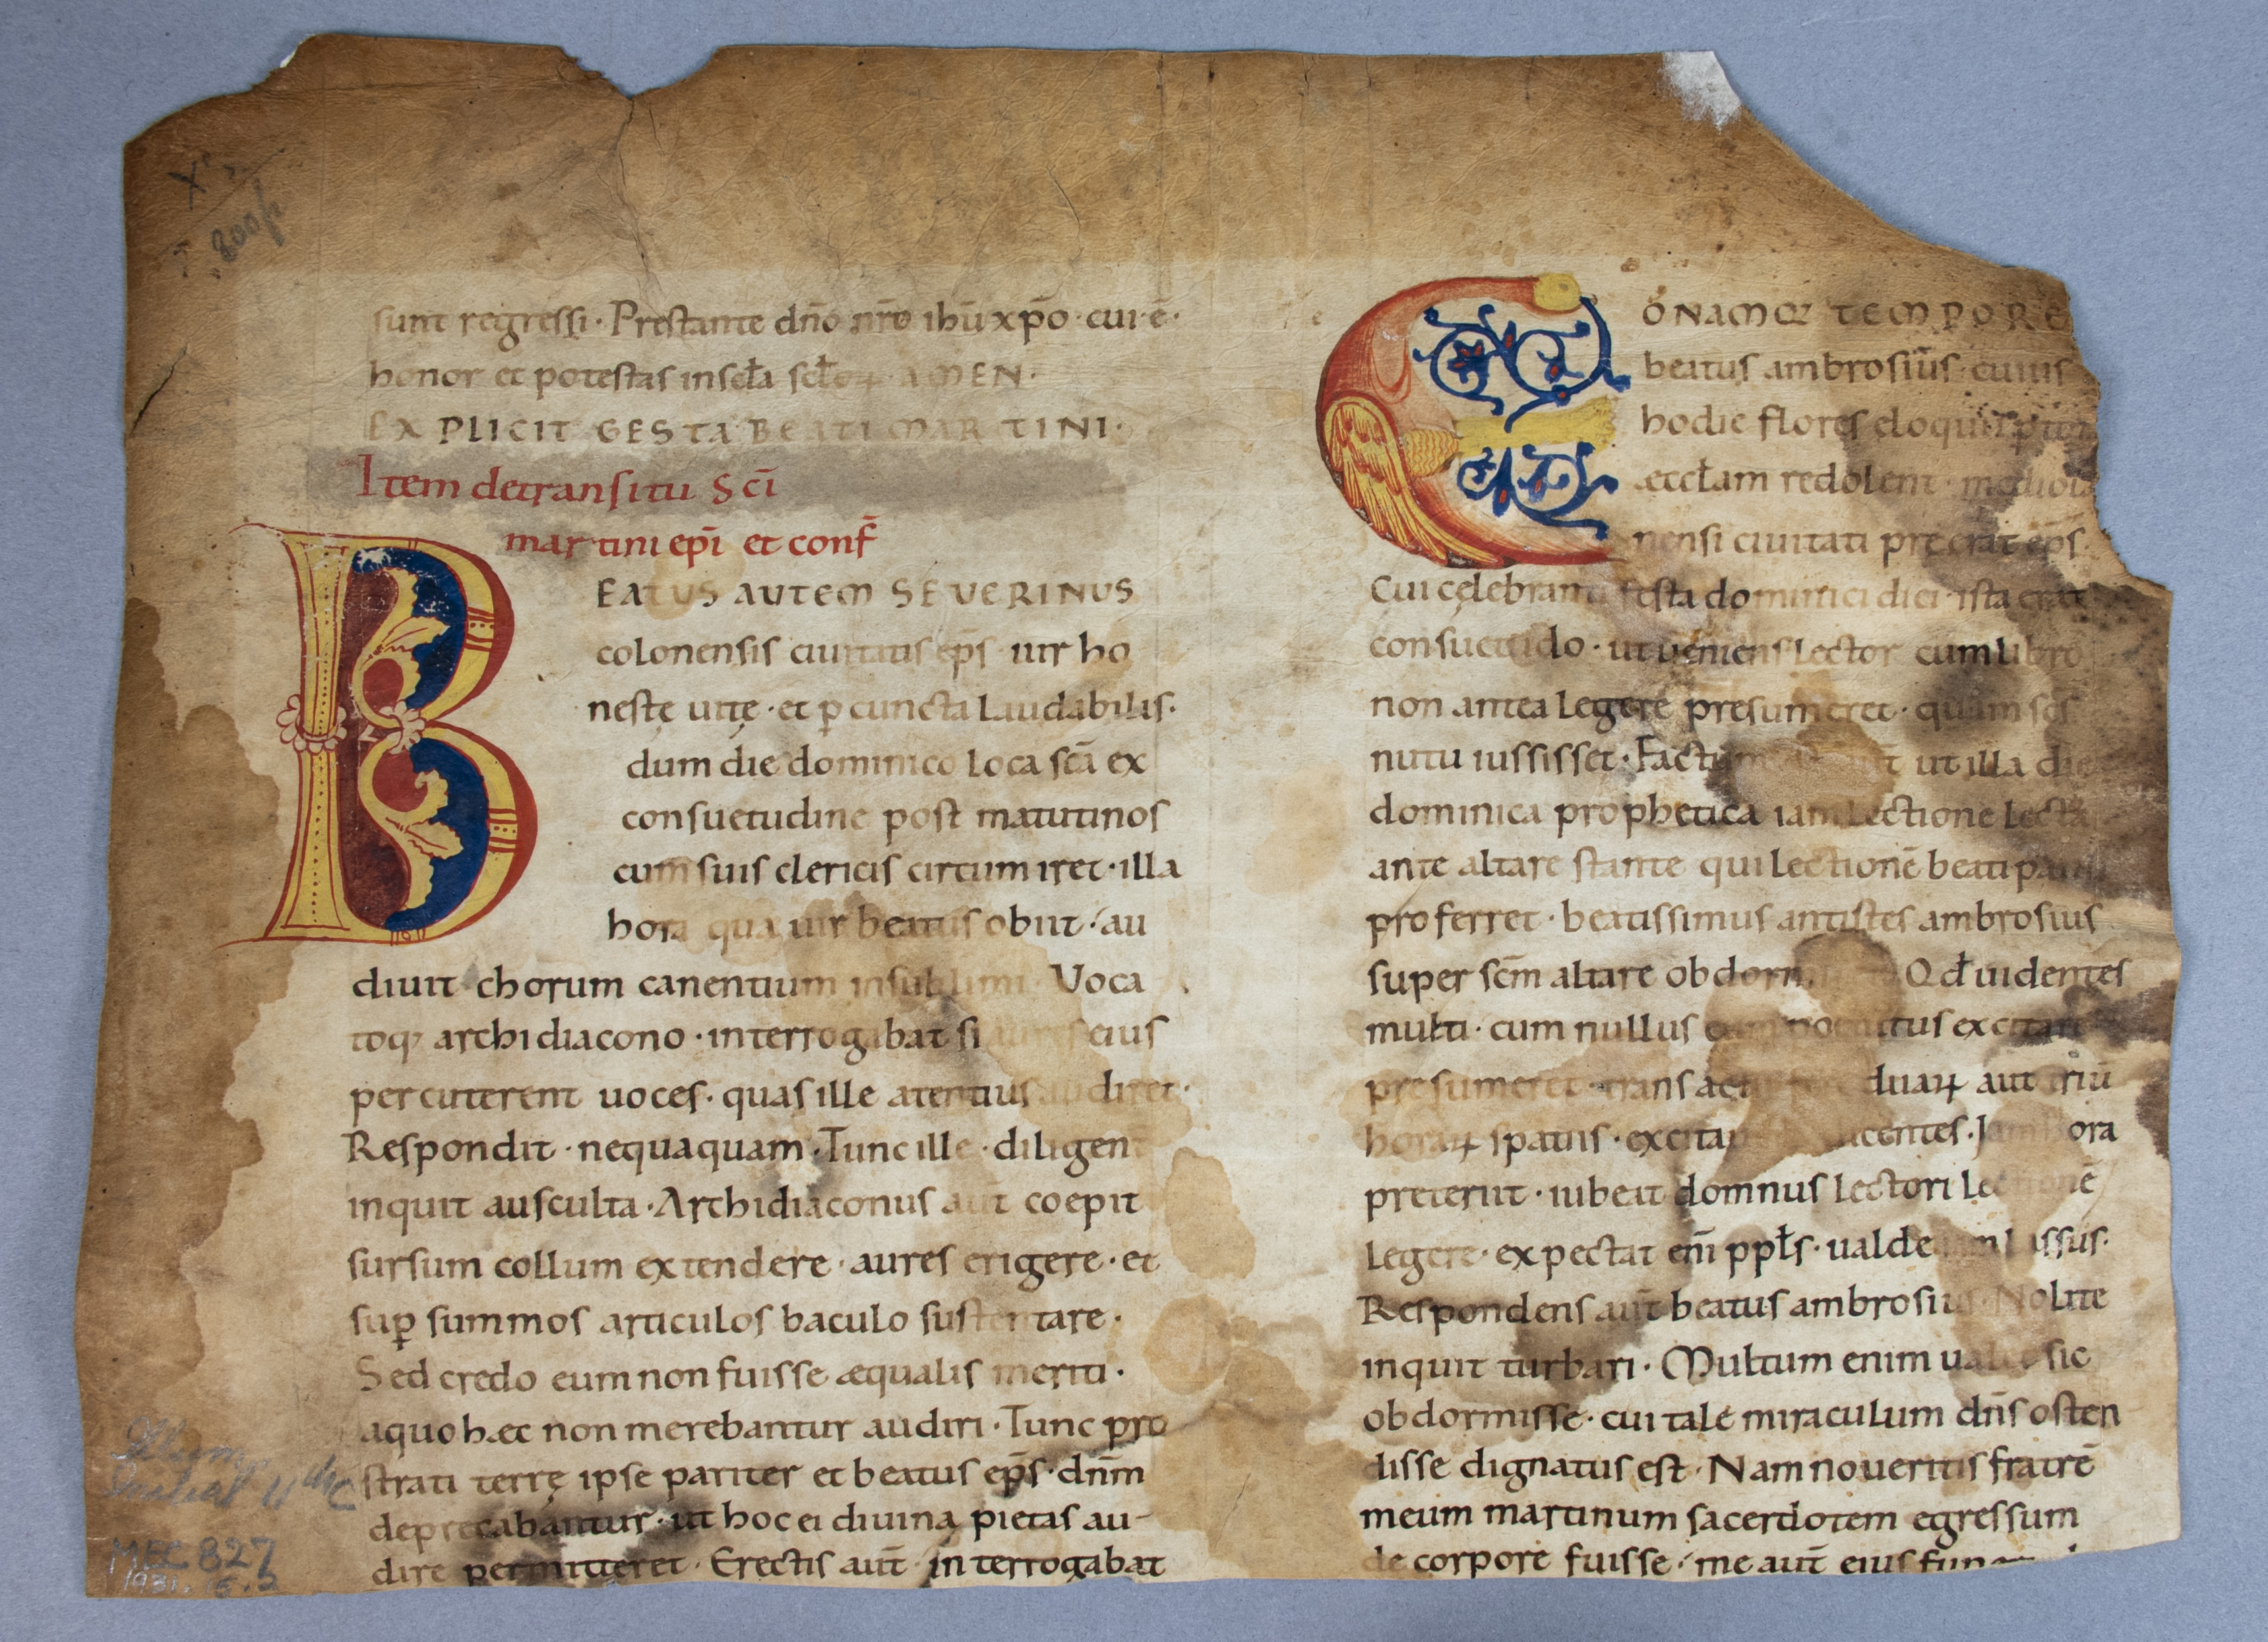 sunt regressi · Prestante dñō nr̄o ihū xp̄o · cui ē ·
honor et potestas in scła scłoꝝ AMEN ·
EXPLICIT GESTA BEATI MARTINI ·
Item de transitu sc̄i
martini ep̄i et conf̄
BEATUS AUTEM SEVERINUS
colonensis ciuitatis ep̄s uir ho
nestę uitę · et ꝑ cuncta laudabilis ·
dum die dominico loca sc̄a ex
consuetudine post matutinos
cum suis clericis circumiret · illa
hora qua uir beatus obiit · au
diuit chorum canentium in sublimi Voca
toqꝫ archidiacono · interrogabat si aures eius
percuterent uoces · quas ille atentius audiret ·
Respondit · nequaquam · Tunc ille · diligen
inquit ausculta · Archidiaconus aut̄ coepit
sursum collum extendere · aures erigere · et
suꝑ summos articulos baculo sustentare ·
Sed credo eum non fuisse æqualis meriti ·
a quo hæc non merebantur audiri · Tunc pro
strati terrę ipse pariter et beatus ep̄s · dñm
deprecabantur · ut hoc ei diuina pietas au-
dire permitteret · Erectis aut̄ interrogabat
EO NAMQꝫ TEMPORE
beatus ambrosius · cuius
hodie flores eloquii
ęccłam redolent
nensi ciuitati preerat ep̄s ·
Cui celebranti festa dominici diei · ista erat
consuetudo · ut ueniens lector cum libro
non antea legere presumeret · quam sc̄s
nutu iussisset · Factum aut̄ ut illa die
dominica prophetica iam lectione lecta
ante altare stante qui lectionē beati
proferret · beatissimus antistes ambrosius
super sc̄m altare obdorm Qđ uidentes
multi · cum nullus penitus excitare
presumeret · transactis duaꝝ aut triū
horaꝝ spatiis · excitant dicentes · Iam hora
preteriit · iubeat domnus lectori lectionē
legere · expectat eñi ppłs · ualde lassus ·
Respondens aut̄ beatus ambrosius · Nolite
inquit turbari · Multum enim ualet sic
obdormisse · cui tale miraculum dñs osten
disse dignatus est · Nam noueritis fratrē
meum martinum sacerdotem egressum
de corpore fuisse · me aut̄ eius
Initial 11th C
MEC 827
1931.